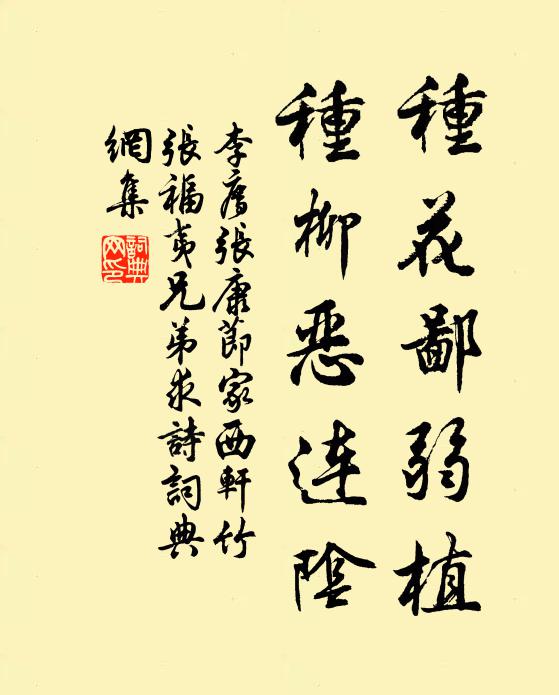 種花鄙弱植
種柳惡連陰
李廌張康節家西軒竹
張福夷兄弟求詩詞典
網集
詞典網印